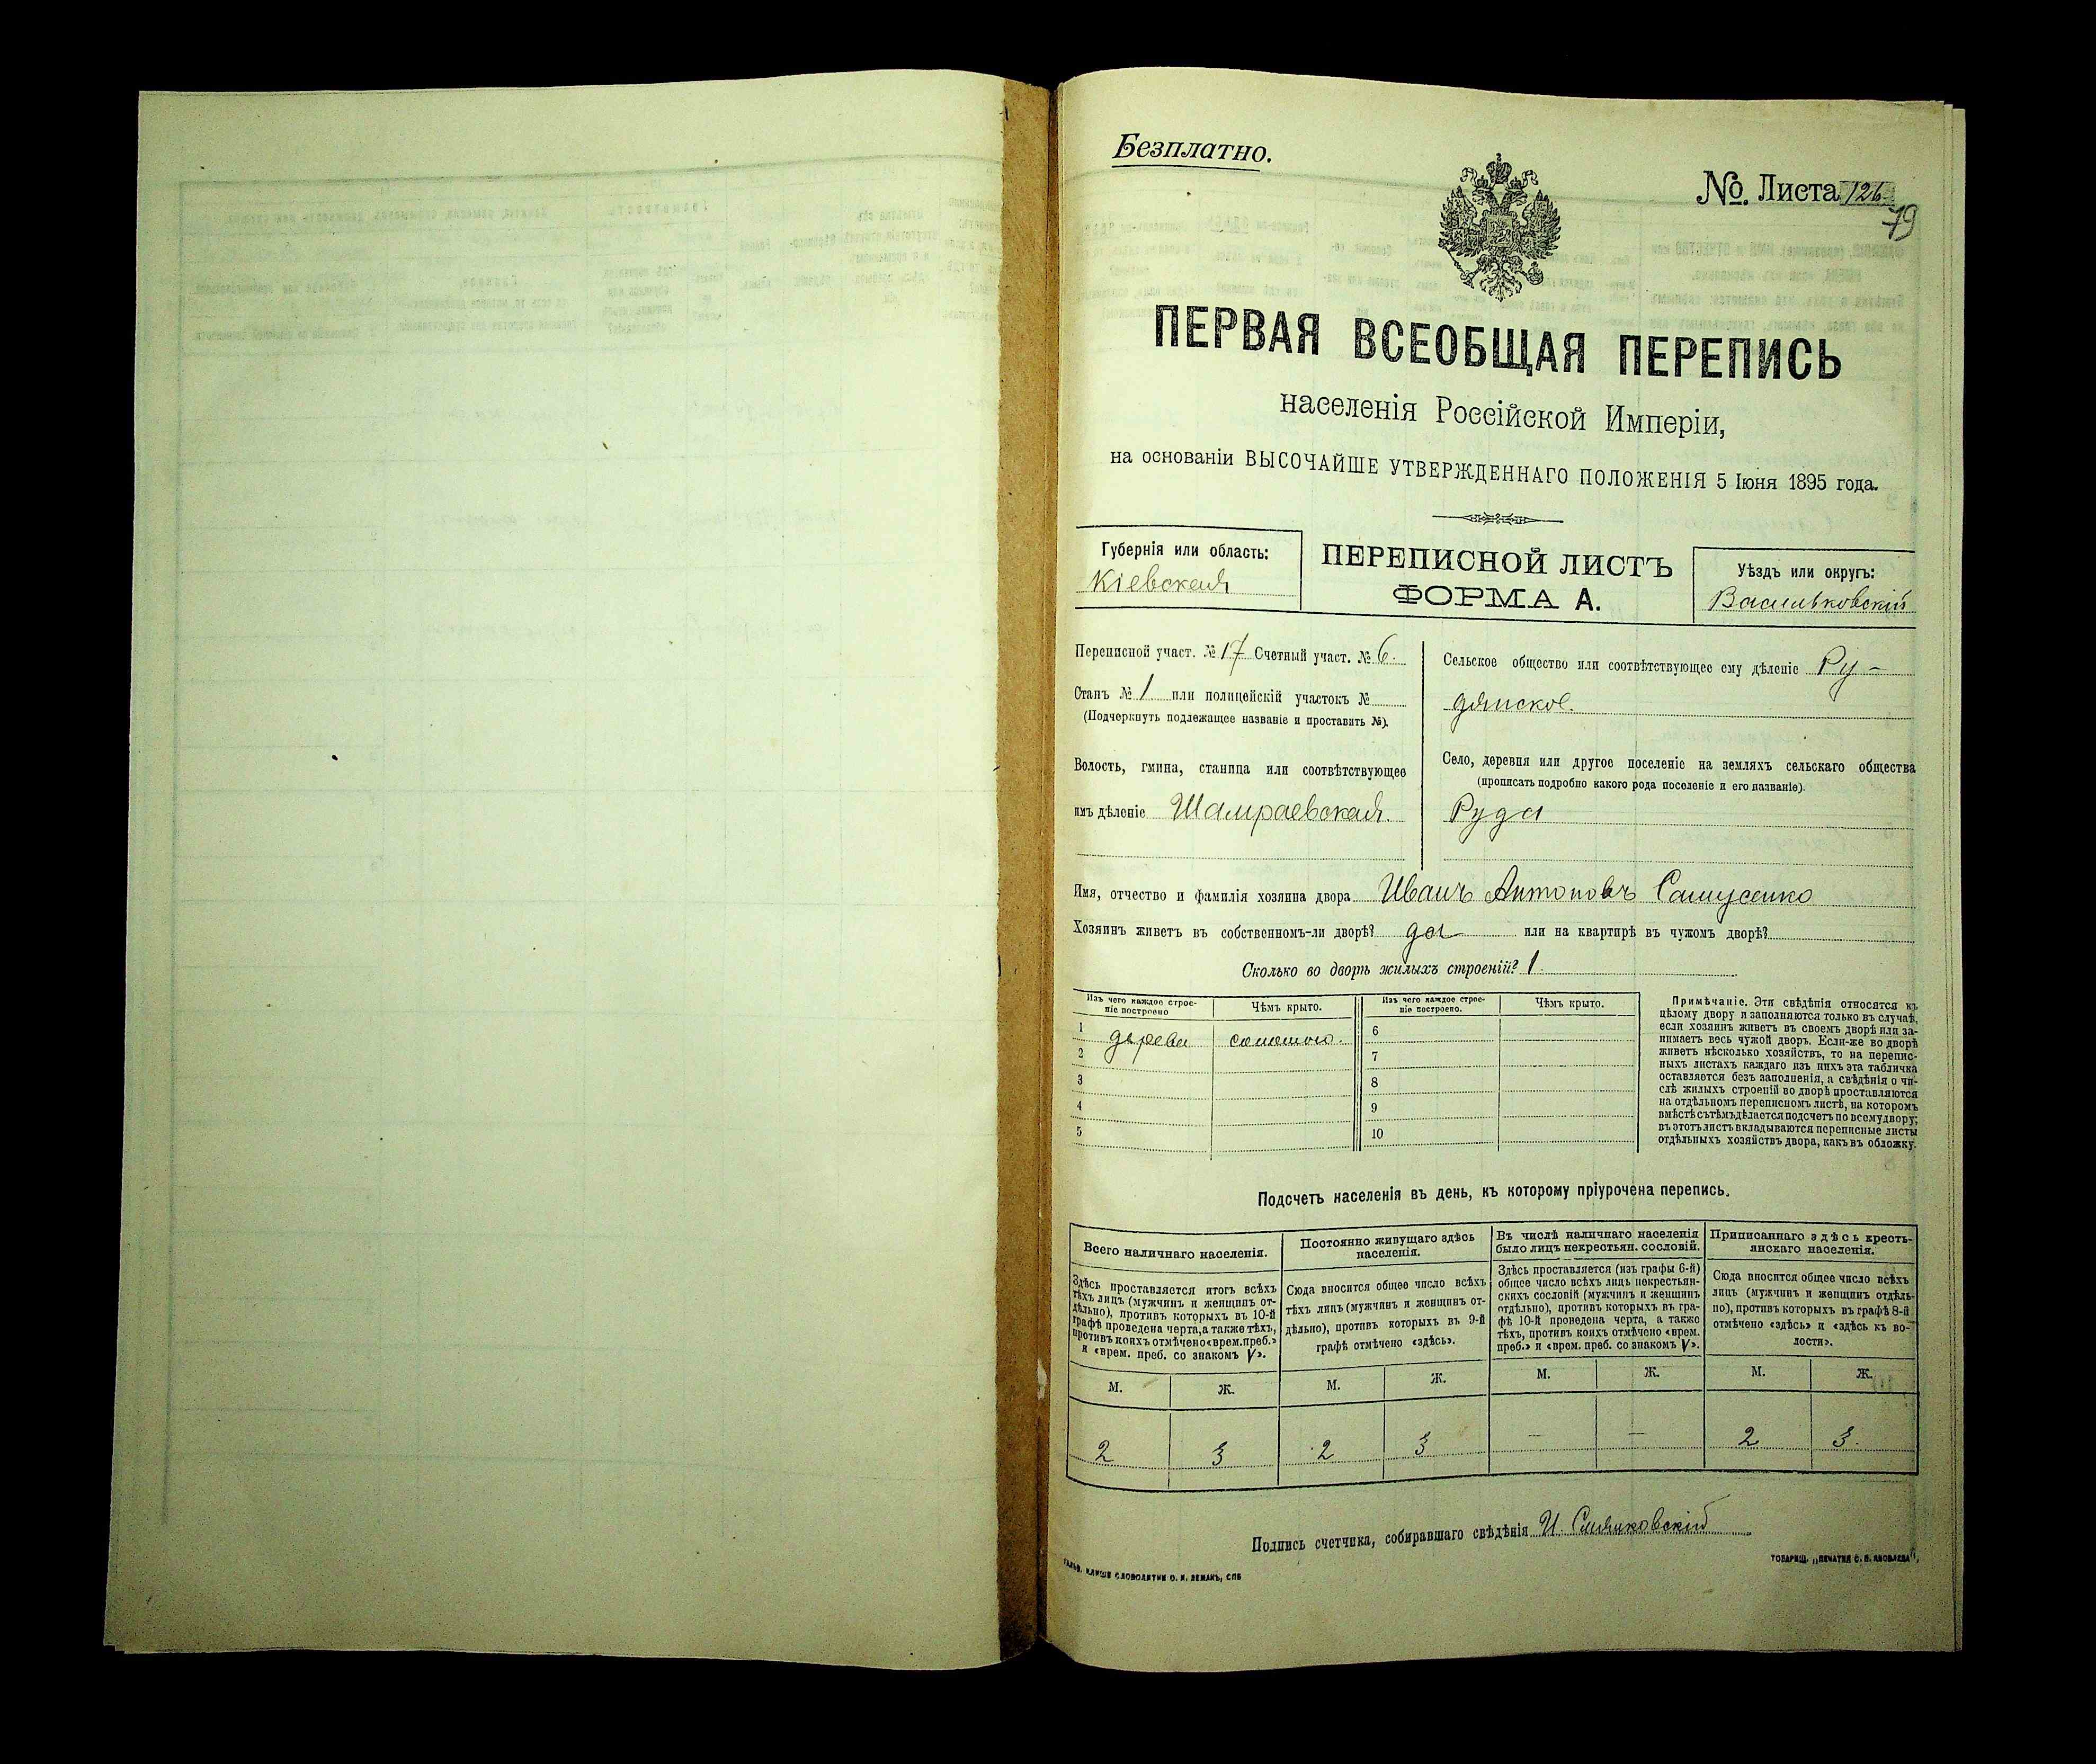 Безплатно.
№. Листа 126
79
ПЕРВАЯ ВСЕОБЩАЯ ПЕРЕПИСЬ
населенія Россійской Имперіи,
на основаніи ВЫСОЧАЙШЕ УТВЕРЖДЕННАГО ПОЛОЖЕНІЯ 5 Іюня 1895 года.
Губернія или область:
Кіевская
ПЕРЕПИСНОЙ ЛИСТЪ
ФОРМА А.
Уѣздъ или округъ:
Васильковскій
Переписной участ. № 17 Счетный участ. № 6.
Станъ № 1 или полицейскій участокъ №
(Подчеркнуть подлежащее названіе и проставить №).
Волость, гмина, станица или соотвѣтствующее
имъ дѣленіе Шамраевская.
Сельское общество или соотвѣтствующее ему дѣленіе Ру-
дянское.
Село, деревня или другое поселеніе на земляхъ сельскаго общества
(прописать подробно какого рода поселеніе и его названіе).
Руда
Имя, отчество и фамилія хозяина двора Иванъ Антоновъ Самусенко
Хозяинъ живетъ въ собственномъ-ли дворѣ? да или на квартирѣ въ чужомъ дворѣ?
Сколько во дворѣ жилыхъ строеній? 1.
Изъ чего каждое строе-
ніе построено
Чѣмъ крыто.
Изъ чего каждое строе-
ніе построено.
Чѣмъ крыто.
1 дерева соломою. 6
2 7
3 8
4 9
5 10
Примѣчаніе. Эти свѣдѣнія относятся къ
цѣлому двору и заполняются только въ случаѣ,
если хозяинъ живетъ въ своемъ дворѣ или за-
нимаетъ весь чужой дворъ. Если-же во дворѣ
живетъ нѣсколько хозяйствъ, то на перепис-
ныхъ листахъ каждаго изъ нихъ эта табличка
оставляется безъ заполненія, а свѣдѣнія о чи-
слѣ жилыхъ строеній во дворѣ проставляются
на отдѣльномъ переписномъ листѣ, на которомъ
вмѣстѣ съ тѣмъ дѣлается подсчетъ по всему двору;
въ этотъ листъ вкладываются переписные листы
отдѣльныхъ хозяйствъ двора, какъ въ обложку.
Подсчетъ населенія въ день, къ которому пріурочена перепись.
Всего наличнаго населенія.
Здѣсь проставляется итогъ всѣхъ
тѣхъ лицъ (мужчинъ и женщинъ от-
дѣльно), противъ которыхъ въ 10-й
графѣ проведена черта, а также тѣхъ,
противъ коихъ отмѣчено «врем. преб.»
и «врем. преб. со знакомъ V».
Постоянно живущаго здѣсь
населенія.
Сюда вносится общее число всѣхъ
тѣхъ лицъ (мужчинъ и женщинъ от-
дѣльно), противъ которыхъ въ 9-й
графѣ отмѣчено «здѣсь».
Въ числѣ наличнаго населенія
было лицъ некрестьян. сословій.
Здѣсь проставляется (изъ графы 6-й)
общее число всѣхъ лицъ некрестьян-
скихъ сословій (мужчинъ и женщинъ
отдѣльно), противъ которыхъ въ гра-
фѣ 10-й проведена черта, а также
тѣхъ, противъ коихъ отмѣчено «врем.
преб.» и «врем. преб. со знакомъ V».
Приписаннаго здѣсь кресть-
янскаго населенія.
Сюда вносится общее число всѣхъ
лицъ (мужчинъ и женщинъ отдѣль-
но), противъ которыхъ въ графѣ 8-й
отмѣчено «здѣсь» и «здѣсь къ во-
лости».
М. Ж. М. Ж. М. Ж. М. Ж.
2 3 2 3 — — 2 3.
Подпись счетчика, собиравшаго свѣдѣнія И.
КЛИШЕ СЛОВОЛИТНИ О. И. ЛЕМАНЪ, СПБ
ТОВАРИЩ. „ПЕЧАТНЯ С. П. ЯКОВЛЕВА“,